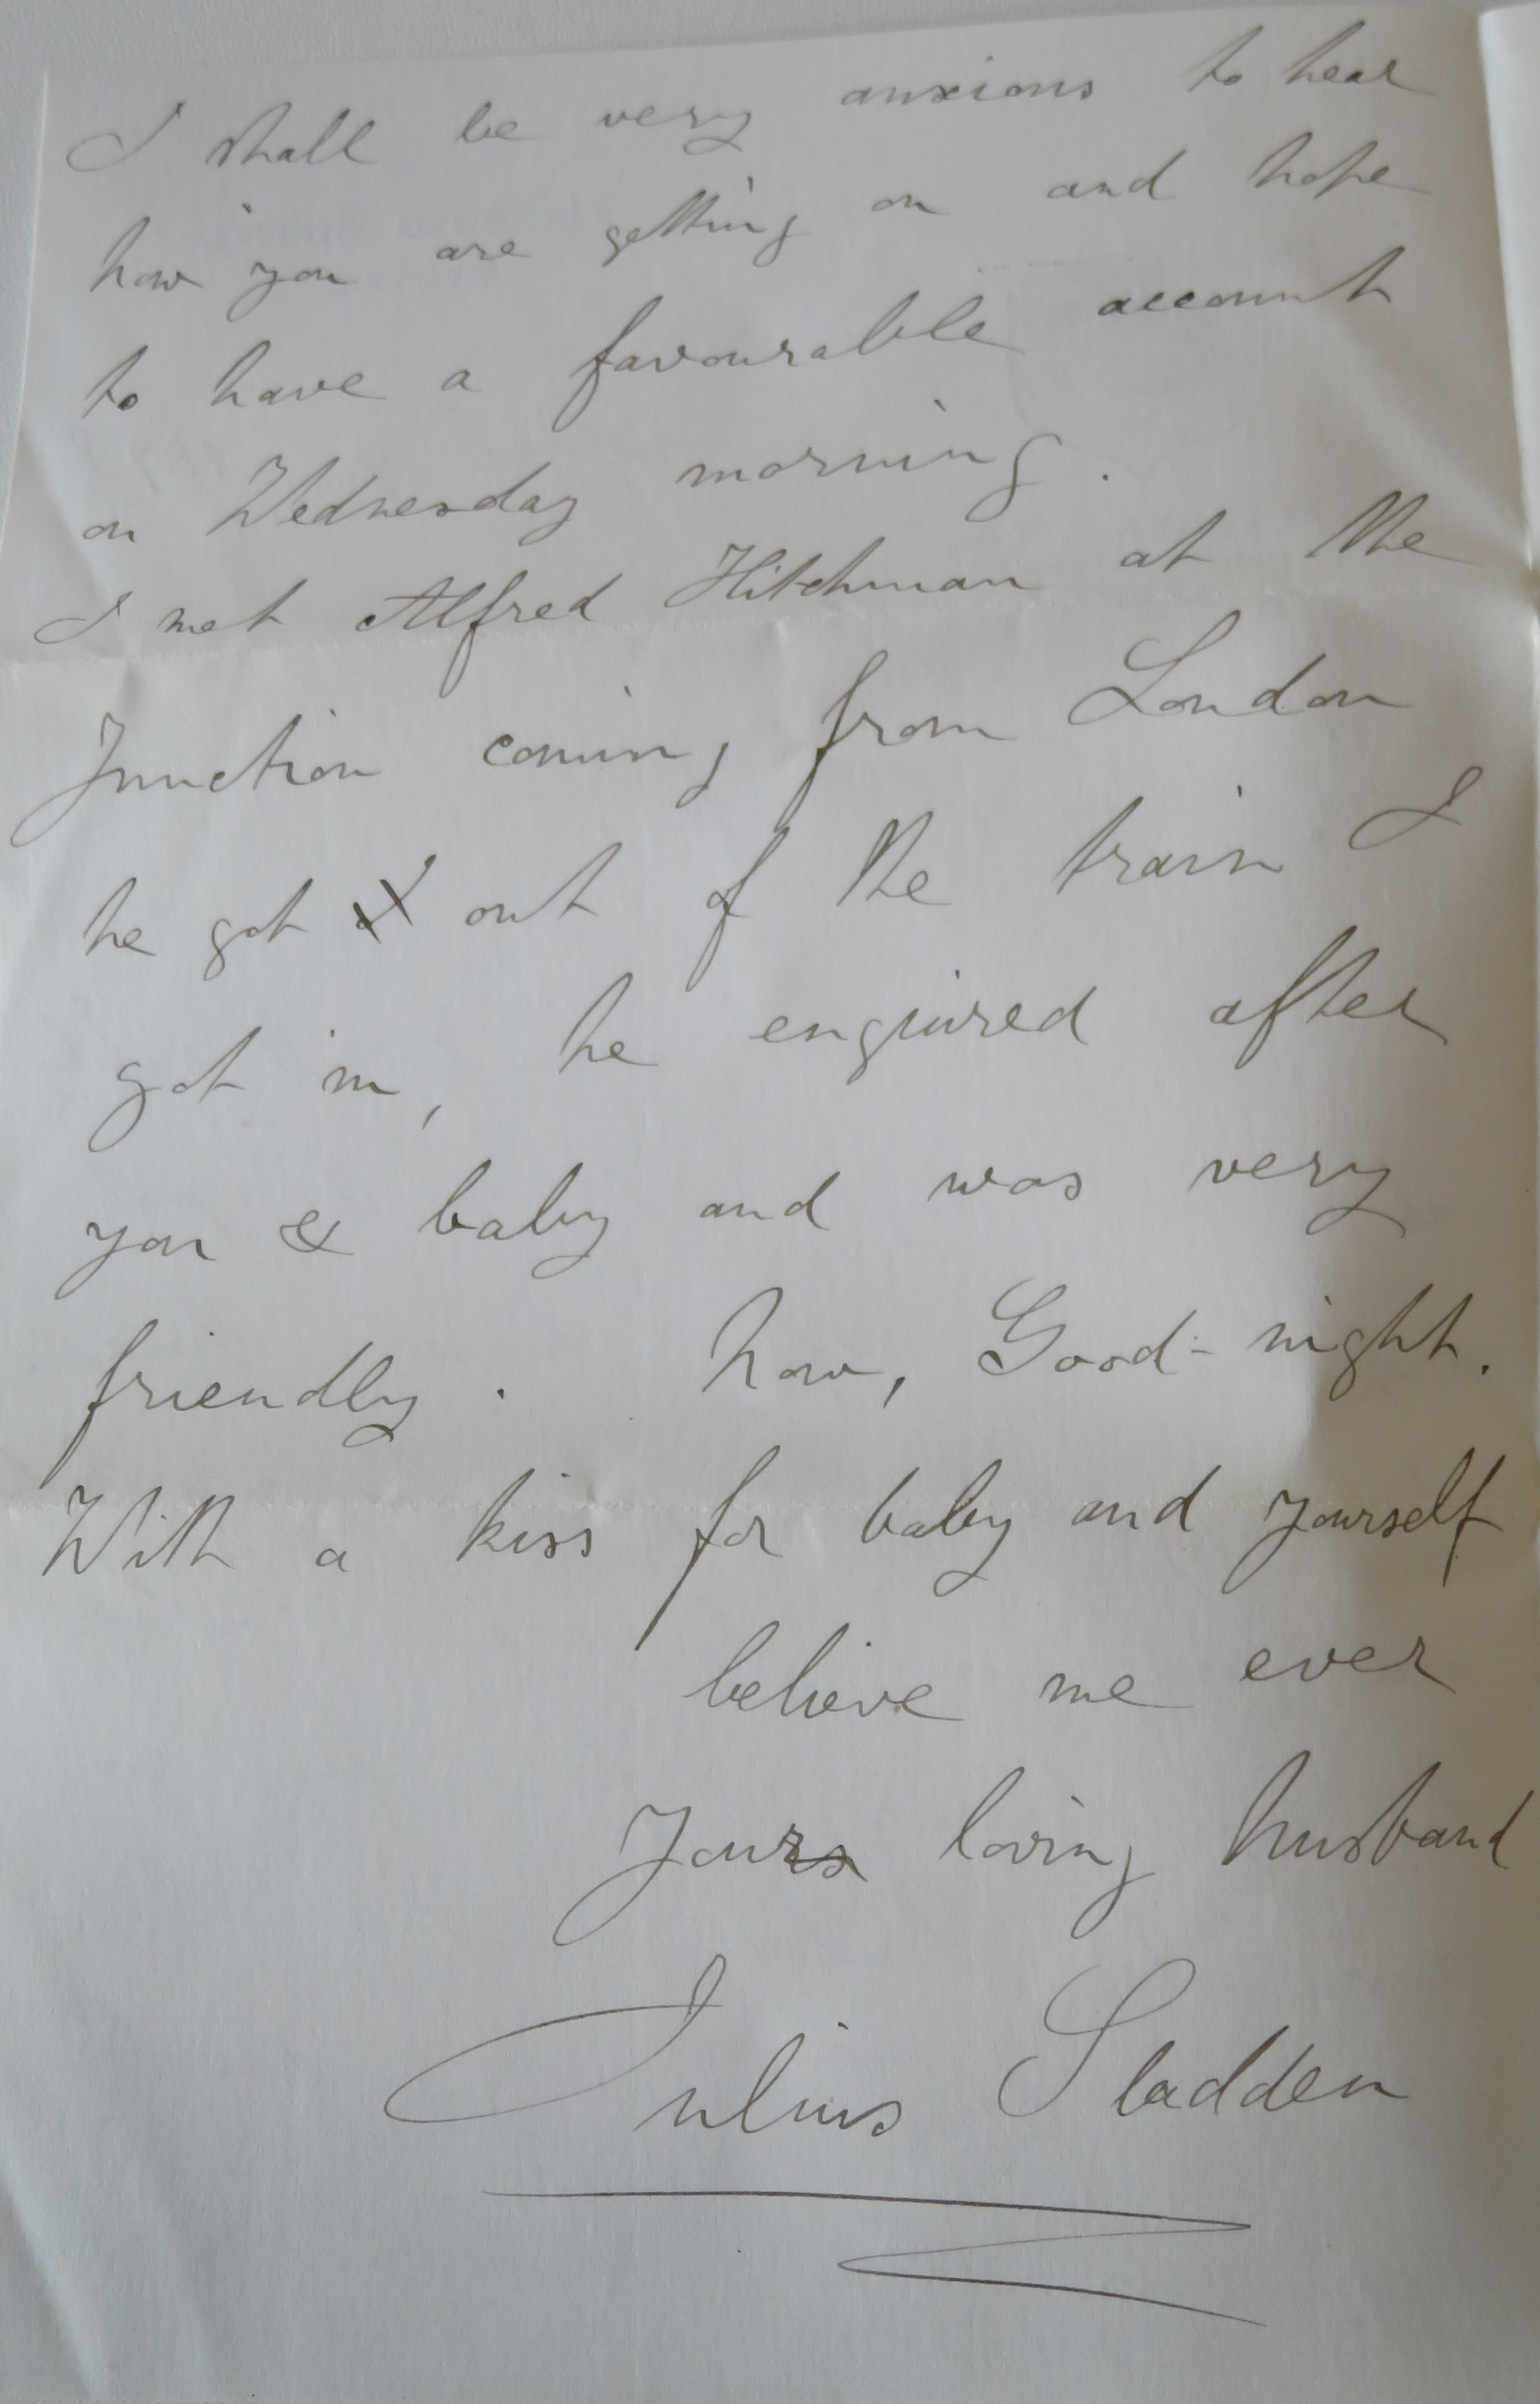 I shall be very anxious to hear
how you are getting on and hope
to have a favourable account
on Wednesday morning.
I met Alfred Hitchman at the
Junction coming from London
he got out of the train I
got in, he enquired after
you & baby and was very
friendly. Now, Good-night.
With a kiss for baby and yourself
believe me ever
Yours loving husband
Julius Sladden